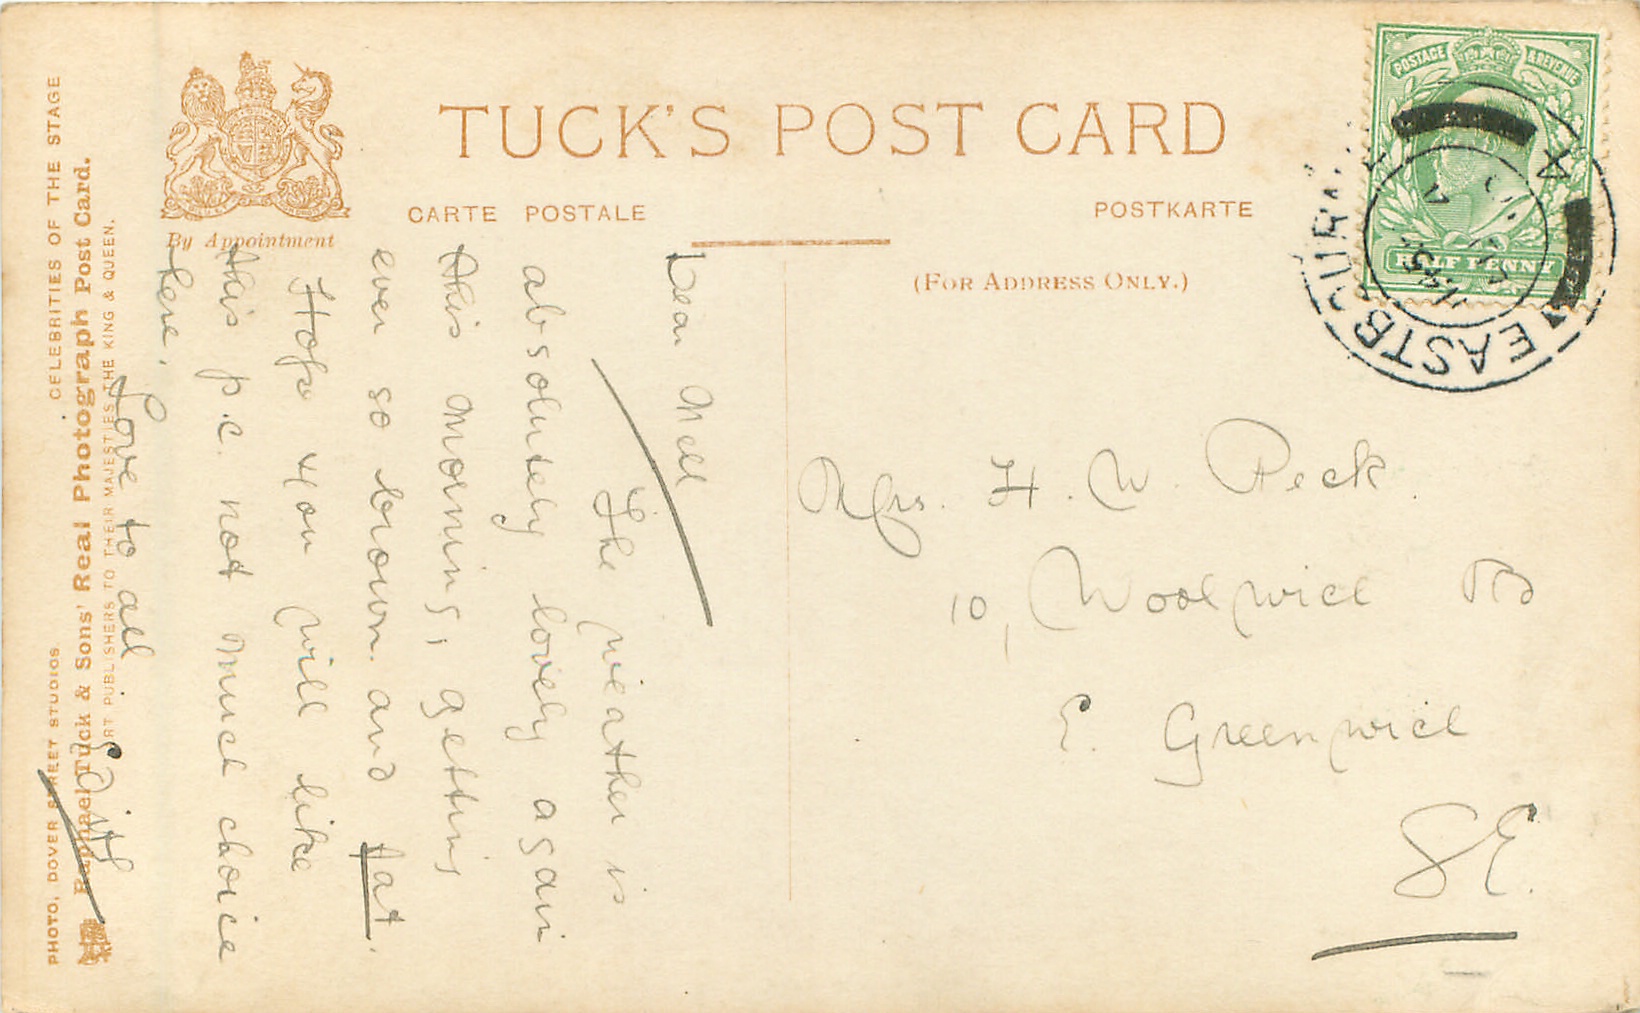 TUCK'S POST CARD
CARTE POSTALE
POSTKARTE
By Appointment
(FOR ADDRESS ONLY.)
POSTAGE & REVENUE
HALF PENNY
EASTB URN
Dear Nell
The weather is
absolutely lovely again
this morning, getting
ever so brown and fat.
Hope you will like
this p.c. not much choice
here.
Love to all
Edith
Mrs. H. W. Peck.
10, Woolwich Rd
E. Greenwich
SE.
CELEBRITIES OF THE STAGE
PHOTO, DOVER STREET STUDIOS
Raphael Tuck & Sons' Real Photograph Post Card.
ART PUBLISHERS TO THEIR MAJESTIES THE KING & QUEEN.